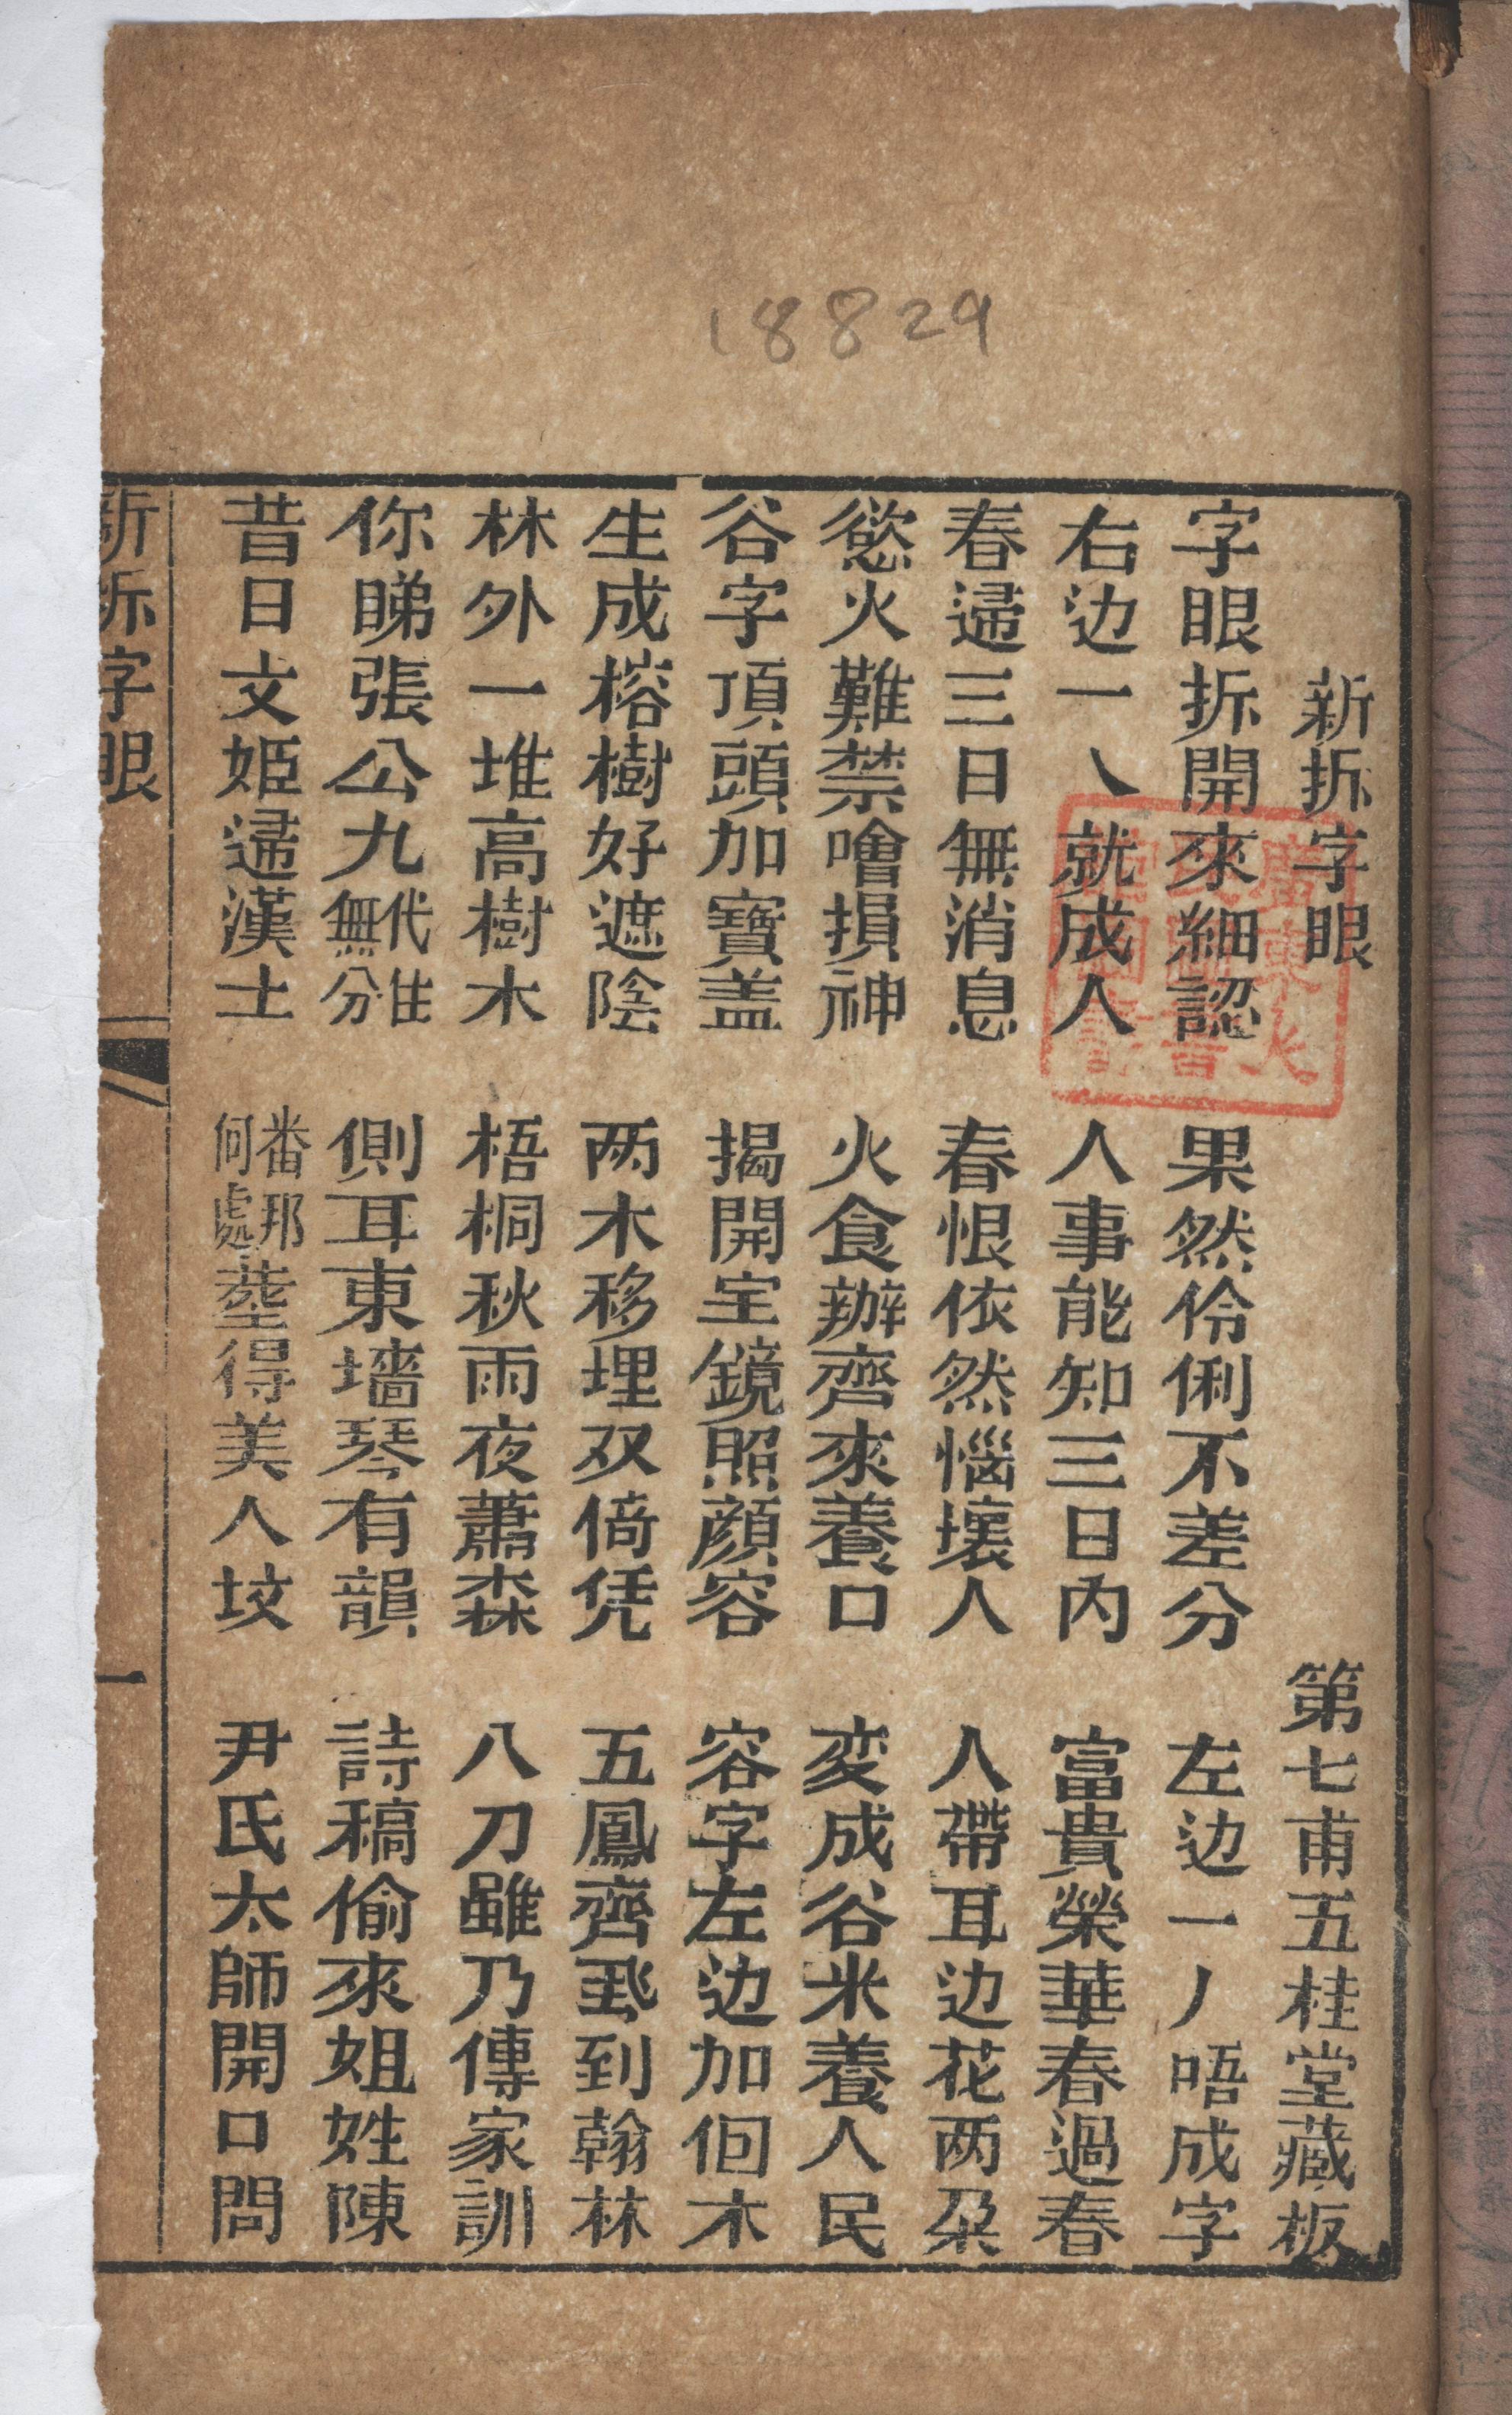 18829
新拆字眼　第七甫五桂堂藏板
字眼拆開來細認　果然伶俐不差分　左边一丿唔成字
右边一乀就成人　人事能知三日内　富貴榮華春過春
春歸三日無消息　春恨依然惱壞人　人帶耳边花两朶
慾火難禁噲損神　火食辦齊來養口　変成谷米養人民
谷字頂頭加寶盖　揭開宝鏡照顔容　容字左边加佪木
生成榕樹好遮陰　两木移埋双倚凭　五鳳齊飛到翰林
林外一堆高樹木　梧桐秋雨夜蕭森　八刀雖乃傳家訓
你睇張公九代住無分　側耳東墻琴有韻　詩稿偷來姐姓陳
昔日文姬歸漢土　番邦何處塟得美人坟　尹氏太師開口問
新拆字眼　一